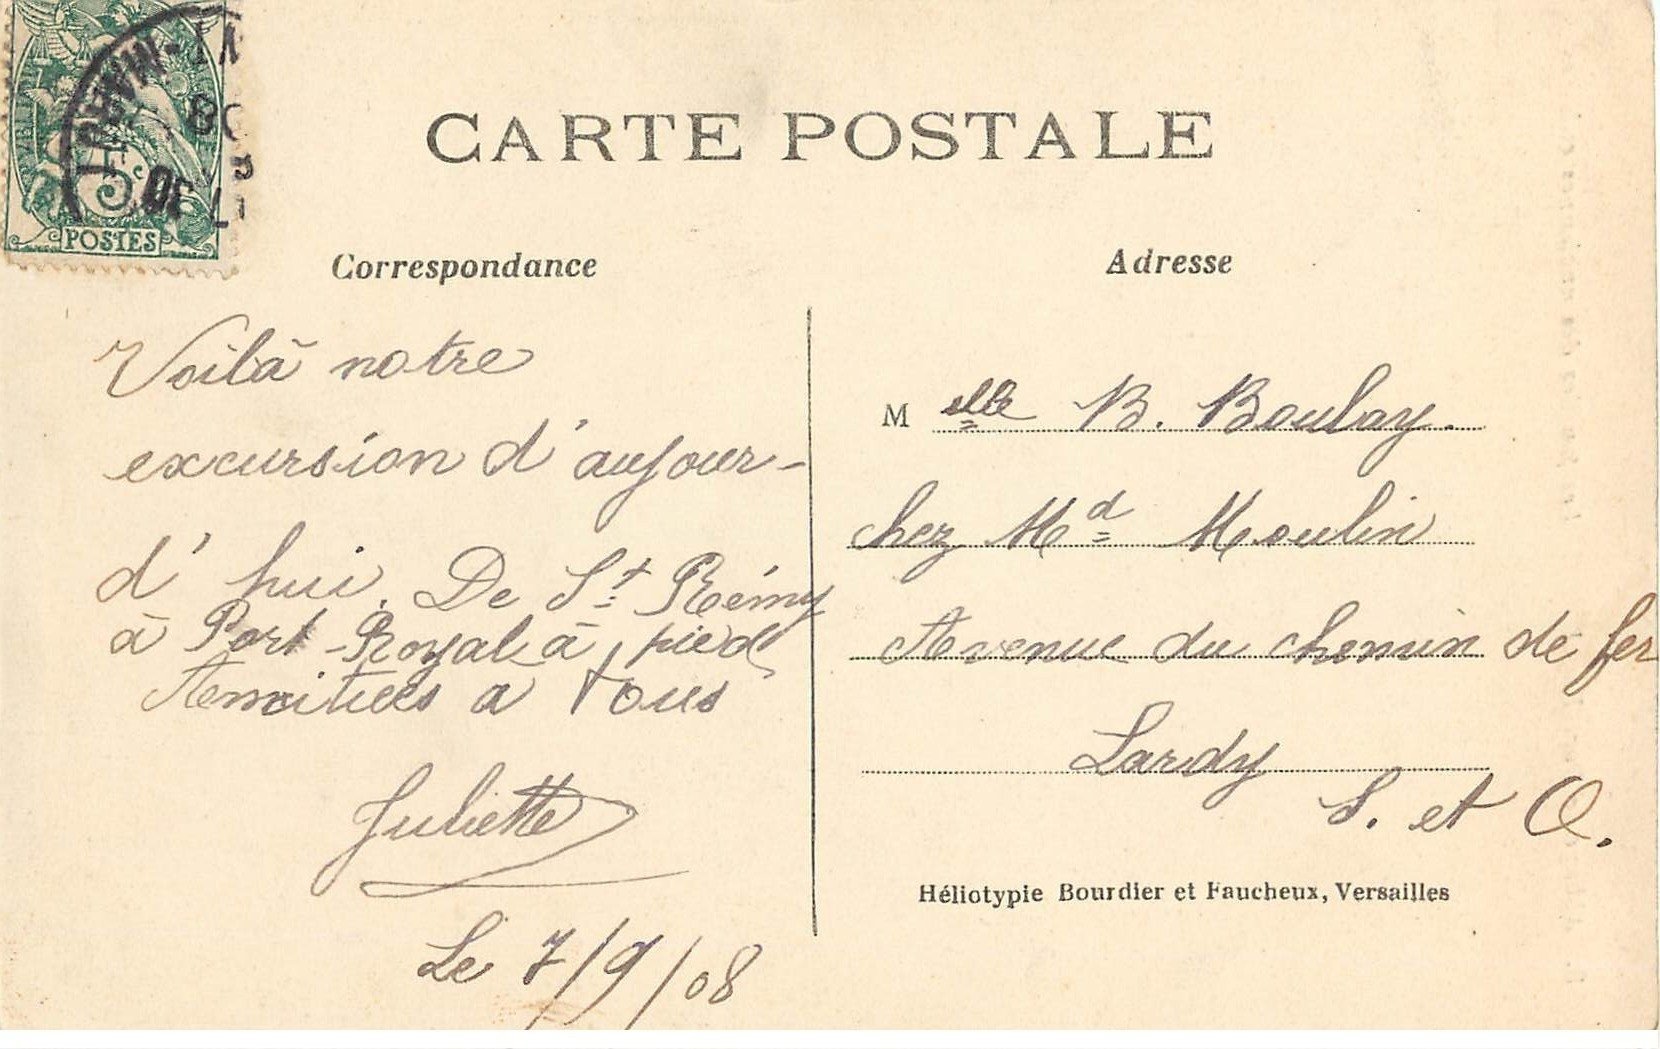 CARTE POSTALE
Correspondance
Voilà notre
excursion d'aujour-
d'hui. De St Rémy
à Port-Royal à pied
Amitiées a tous
Juliette
Le 7/9/08
Adresse
Melle B. Boulay.
chez Md Moulin
Avenue du chemin de fer
Lardy
S. et O.
Héliotypie Bourdier et Faucheux, Versailles
5c
POSTES
08